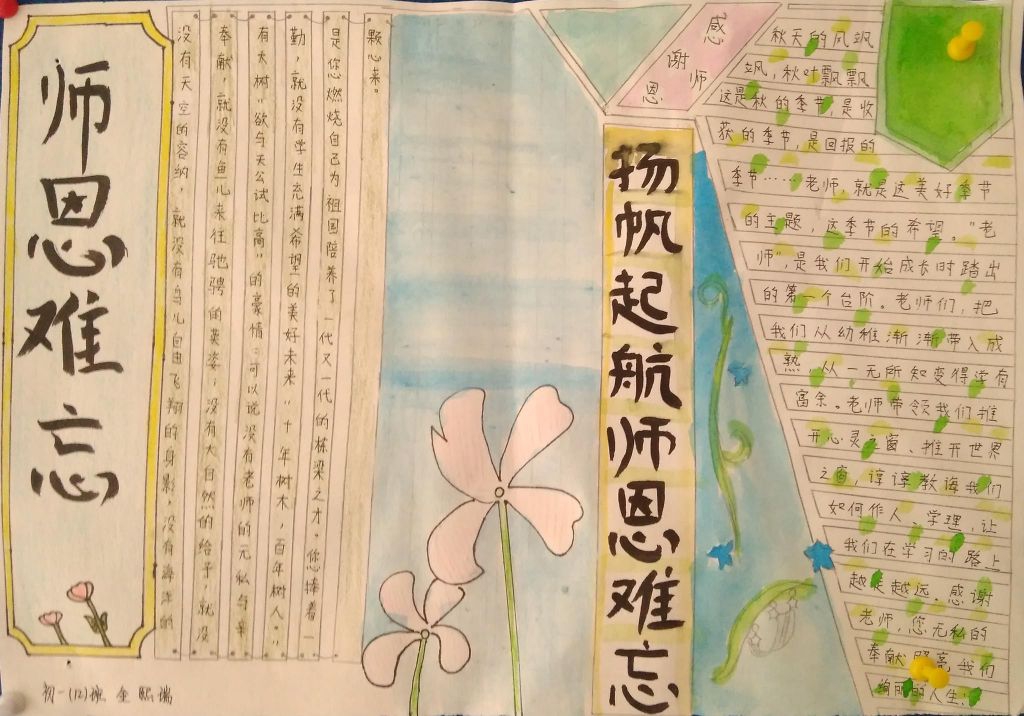 师恩难忘
没有天空的容纳，就没有鸟儿自由飞翔的身影，没有海洋的
奉献，就没有鱼儿来往驰骋的英姿；没有大自然的给予，就没
有大树“欲与天公试比高”的豪情；可以说没有老师的无私与辛
勤，就没有学生充满希望的美好未来“十年树木，百年树人”，
是您燃烧自己为祖国培养了一代又一代的栋梁之才。您捧着一
颗心来。
初一(12)班 金熙瑞
扬帆起航师恩难忘
感谢师恩
秋天的风飒
飒，秋叶飘飘
这是秋的季节，是收
获的季节，是回报的
季节……老师，就是这美好季节
的主题，这季节的希望。“老
师”，是我们开始成长时踏出
的第一个台阶。老师们，把
我们从幼稚渐渐带入成
熟，从一无所知变得学有
富余。老师带领我们推
开心灵之窗、推开世界
之窗，谆谆教诲我们
如何作人、学理，让
我们在学习的路上
越走越远。感谢
老师，您无私的
奉献照亮我们
绚丽的人生！